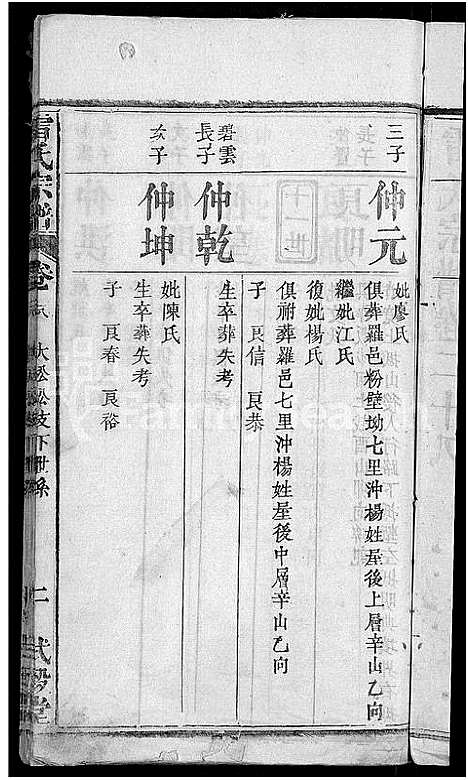 三子
仲元
妣廖氏
俱葬羅邑粉壁坳七里沖楊姓屋後上層辛山乙向
繼妣江氏
復妣楊氏
俱祔葬羅邑七里沖楊姓屋後中層辛山乙向
子 良信 良恭
十一世
碧雲長子
仲乾
生卒葬失考
次子
仲坤
妣陳氏
生卒葬失考
子 良春 良裕
氏宗譜
卷
大松松支下世系
二